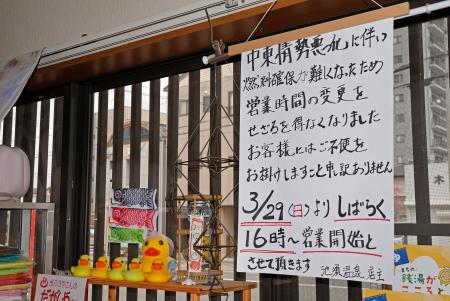 中東情勢悪化に伴い
燃料確保が難しくなったため
営業時間の変更を
せざるを得なくなりました
お客様にはご不便を
お掛けしますこと申訳ありません
3/29(日)よりしばらく
16時〜営業開始と
させて頂きます
店主
木
銭湯が